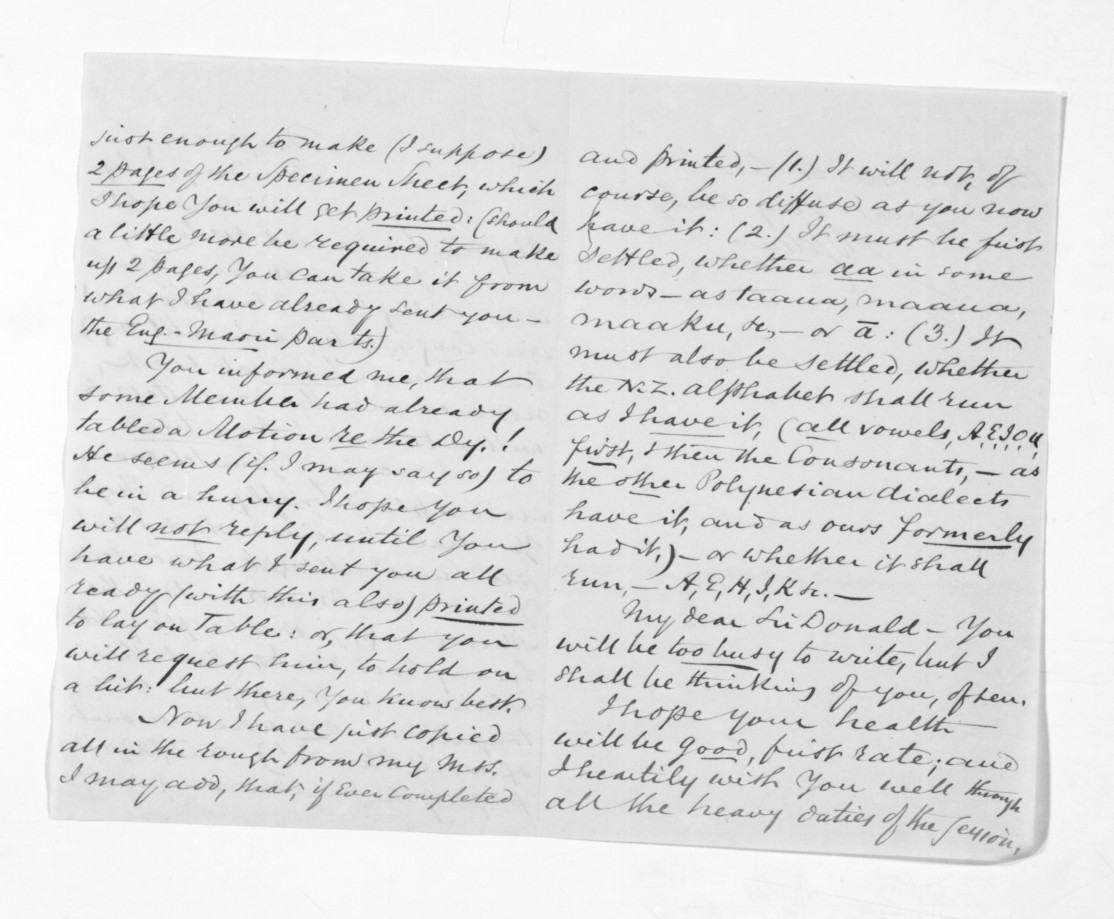 just enough to make (I suppose)
2 pages of the Specimen Sheet, which
I hope You will get printed: (should
a little more be required to make
up 2 pages, You can take it from
what I have already sent you –
the Eng.-Maori parts.)
You informed me, that
some Member had already
tabled a Motion re the Dy.!
He seems (if I may say so) to
be in a hurry. I hope You
will not reply, until You
have what I sent you all
ready (with this also) printed
to lay on Table: or, that you
will request him, to hold on
a bit: but there, You know best.
Now I have just copied
all in the rough from my Mss.
I may add, that, if Ever completed
and printed, – (1.) It will not, of
course, be so diffuse as you now
have it: (2.) It must be first
settled, whether aa in some
words – as taaua, maaua,
maaku, &c, – or ā: (3.) It
must also be settled, whether
the N.Z. alphabet shall run
as I have it, (all vowels, A,E,I,O,U,
first, & then the Consonants, – as
the other Polynesian dialects
have it, and as ours formerly
had it,) – or whether it shall
run, – A, E, H, I, K &c. –
My dear Sir Donald – You
will be too busy to write, but I
shall be thinking of you, often.
I hope your health
will be good, first rate; and
I heartily wish You well through
all the heavy duties of the Session.